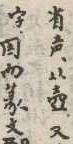 肖声、以壺、又
字、因而篆文